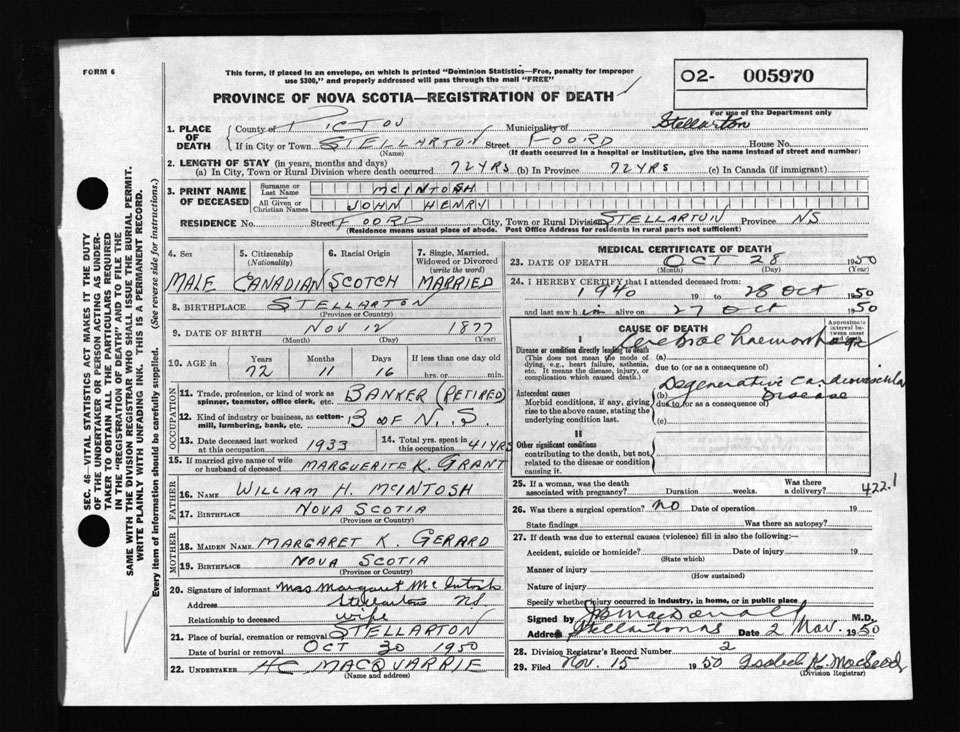 FORM 6
This form, if placed in an envelope, on which is printed "Dominion Statistics—Free, penalty for improper
use $300," and properly addressed will pass through the mail "FREE"
O2- 005970
For use of the Department only
PROVINCE OF NOVA SCOTIA—REGISTRATION OF DEATH
1. PLACE OF DEATH { County of PICTOU Municipality of Stellarton
If in City or Town STELLARTON Street FOORD House No.
(Name) (If death occurred in a hospital or institution, give the name instead of street and number)
2. LENGTH OF STAY (in years, months and days)
(a) In City, Town or Rural Division where death occurred 72 YRS (b) In Province 72 YRS (c) In Canada (if immigrant)
3. PRINT NAME OF DECEASED { Surname or Last Name MCINTOSH
All Given or Christian Names JOHN HENRY
RESIDENCE No. Street FOORD City, Town or Rural Division STELLARTON Province NS
(Residence means usual place of abode. Post Office Address for residents in rural parts not sufficient)
4. Sex 5. Citizenship (Nationality) 6. Racial Origin 7. Single, Married, Widowed or Divorced (write the word)
MALE CANADIAN SCOTCH MARRIED
8. BIRTHPLACE STELLARTON
(Province or Country)
9. DATE OF BIRTH NOV 12 1877
(Month) (Day) (Year)
10. AGE in Years Months Days If less than one day old
72 11 16 hrs. or min.
OCCUPATION
11. Trade, profession, or kind of work as spinner, teamster, office clerk, etc. BANKER (RETIRED)
12. Kind of industry or business, as cotton-mill, lumbering, bank, etc. B of N. S.
13. Date deceased last worked at this occupation 1933 14. Total yrs. spent in this occupation 41 YRS
15. If married give name of wife or husband of deceased MARGUERITE K. GRANT
FATHER
16. NAME WILLIAM H. MCINTOSH
17. BIRTHPLACE NOVA SCOTIA
(Province or Country)
MOTHER
18. MAIDEN NAME MARGARET K. GERARD
19. BIRTHPLACE NOVA SCOTIA
(Province or Country)
20. Signature of informant Mrs Margaret McIntosh
Address Stellarton NS.
Relationship to deceased wife
21. Place of burial, cremation or removal STELLARTON
Date of burial or removal OCT 30 1950
22. UNDERTAKER HC MACQUARRIE
(Name and address)
MEDICAL CERTIFICATE OF DEATH
23. DATE OF DEATH OCT 28 1950
(Month) (Day) (Year)
24. I HEREBY CERTIFY that I attended deceased from:
1940 19 to 28 Oct 1950
and last saw him alive on 27 Oct 1950
CAUSE OF DEATH Approximate interval between onset and death
I
Disease or condition directly leading to death
(This does not mean the mode of dying, e.g., heart failure, asthenia, etc. It means the disease, injury, or complication which caused death.)
(a) Cerebral haemorrhage
due to (or as a consequence of)
Antecedent causes
Morbid conditions, if any, giving rise to the above cause, stating the underlying condition last.
(b) Degenerative cardiovascular disease
due to (or as a consequence of)
(c)
II
Other significant conditions
contributing to the death, but not related to the disease or condition causing it.
25. If a woman, was the death associated with pregnancy? Duration weeks. Was there a delivery?
422.1
26. Was there a surgical operation? no Date of operation 19
State findings Was there an autopsy?
27. If death was due to external causes (violence) fill in also the following:
Accident, suicide or homicide? Date of injury 19
(State which)
Manner of injury
(How sustained)
Nature of injury
Specify whether injury occurred in industry, in home, or in public place
Signed by MacDonald M.D.
Address Stellarton NS Date 2 Nov. 1950
28. Division Registrar's Record Number 2
29. Filed Nov. 15 1950 Isabel K. MacLeod
(Division Registrar)
SEC. 46—VITAL STATISTICS ACT MAKES IT THE DUTY
OF THE UNDERTAKER OR PERSON ACTING AS UNDER-
TAKER TO OBTAIN ALL THE PARTICULARS REQUIRED
IN THE "REGISTRATION OF DEATH" AND TO FILE THE
SAME WITH THE DIVISION REGISTRAR WHO SHALL ISSUE THE BURIAL PERMIT.
WRITE PLAINLY WITH UNFADING INK. THIS IS A PERMANENT RECORD.
Every item of information should be carefully supplied. (See reverse side for instructions.)